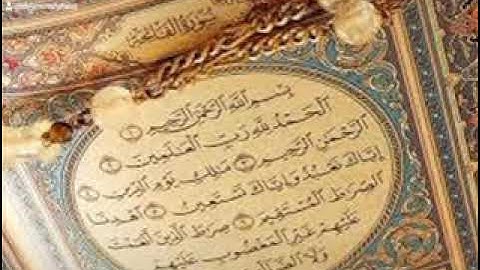 سُورَةُ الْفَاتِحَةِ
بِسْمِ اللَّهِ الرَّحْمَٰنِ الرَّحِيمِ ١
الْحَمْدُ لِلَّهِ رَبِّ الْعَالَمِينَ ٢
الرَّحْمَٰنِ الرَّحِيمِ ٣ مَالِكِ يَوْمِ الدِّينِ ٤
إِيَّاكَ نَعْبُدُ وَإِيَّاكَ نَسْتَعِينُ ٥ اهْدِنَا
الصِّرَاطَ الْمُسْتَقِيمَ ٦ صِرَاطَ الَّذِينَ أَنْعَمْتَ
عَلَيْهِمْ غَيْرِ الْمَغْضُوبِ عَلَيْهِمْ
وَلَا